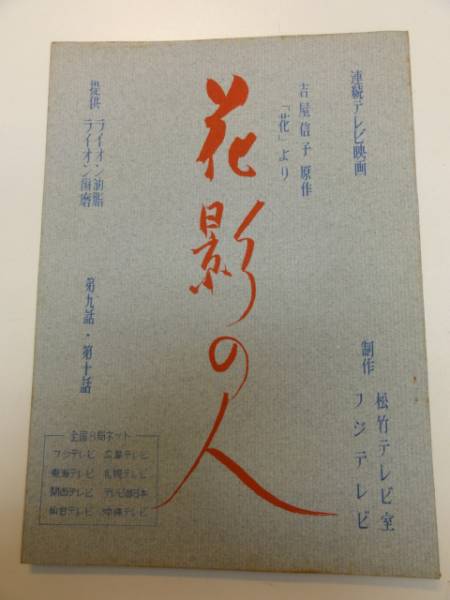 連続テレビ映画
吉屋信子 原作
「花」より
花影の人
制作 松竹テレビ室
フジテレビ
提供 ライオン油脂
ライオン歯磨
第九話・第十話
全国8局ネット
フジテレビ 広島テレビ
東海テレビ 札幌テレビ
関西テレビ テレビ西日本
仙台テレビ 沖縄テレビ